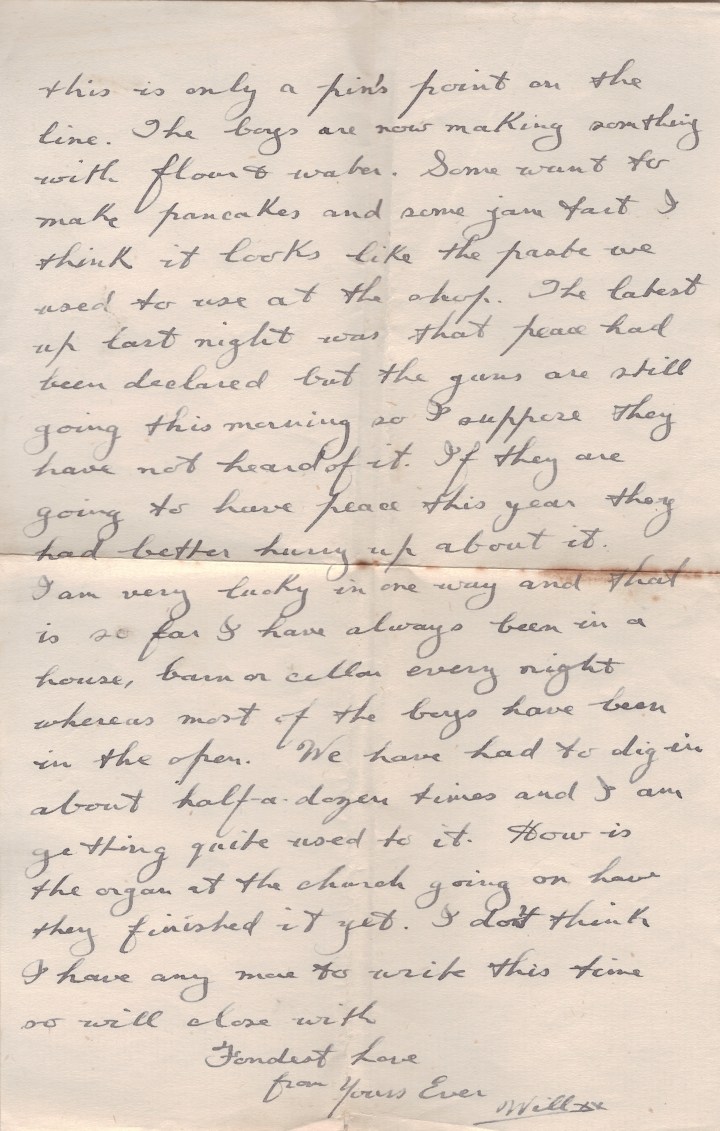 this is only a pin's point on the
line. The boys are now making somthing
with flour & water. Some want to
make pancakes and some jam tart I
think it looks like the paste we
used to use at the shop. The latest
up last night was that peace had
been declared but the guns are still
going this morning so I suppose they
have not heard of it. If they are
going to have peace this year they
had better hurry up about it.
I am very lucky in one way and that
is so far I have always been in a
house, barn or cellar every night
whereas most of the boys have been
in the open. We have had to dig in
about half-a-dozen times and I am
getting quite used to it. How is
the organ at the church going on have
they finished it yet. I don't think
I have any more to write this time
so will close with
Fondest love
from Yours Ever
Will xx